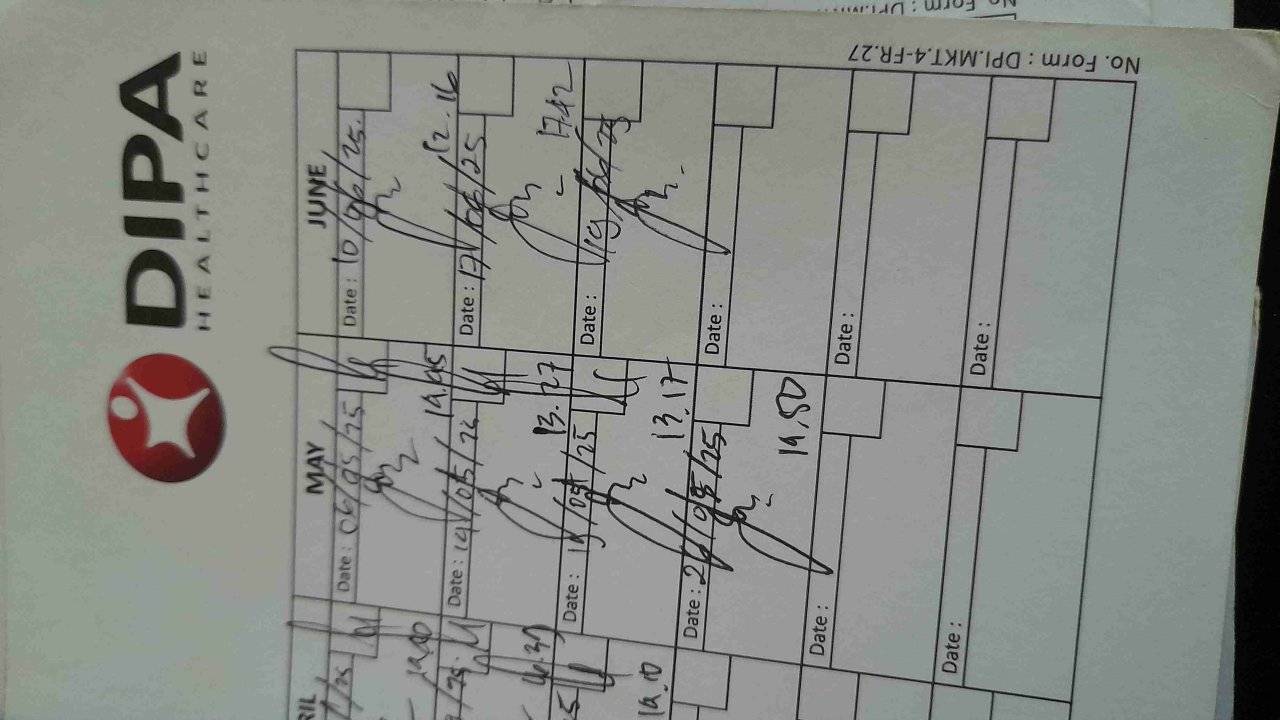 DIPA
HEALTHCARE
No. Form : DPI.MKT.4-FR.27
RIL
MAY
JUNE
Date : 06/05/25
Date : 10/06/25.
19.45
12.16
Date : 14/05/25
Date : 17/06/25
13.27
17.42
Date : 19/05/25
Date : 19/06/25
13.17
19.10
Date : 26/05/25
Date :
19.50
Date :
Date :
Date :
Date :